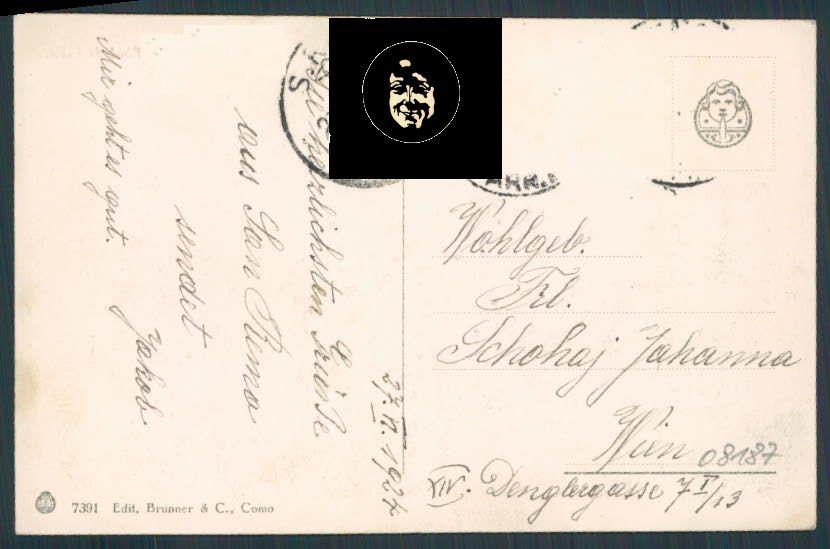 Die herzlichsten Grüße
aus San Remo
sendet
Jakob
Mir geht es gut.
1927
Wohlgeb.
Frl.
Schohaj Johanna
Wien
08187
XIV. Denglergasse 7 I/13
7391 Edit. Brunner & C., Como